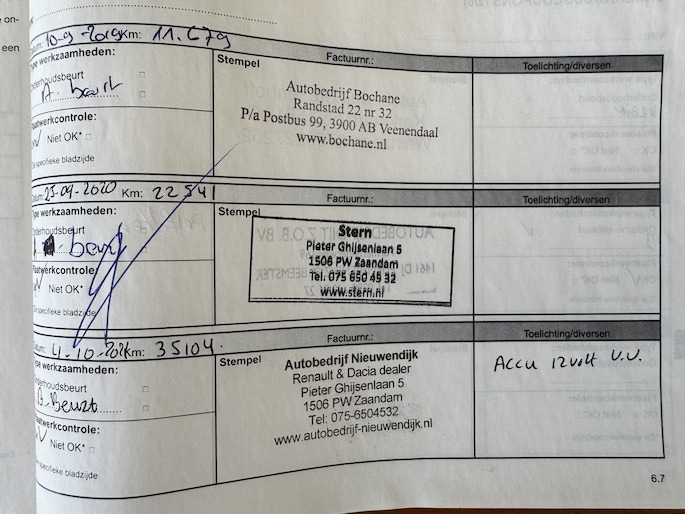 e on-
een
Datum: 10-9-2019 Km: 11.679
Factuurnr.:
Toelichting/diversen
Type werkzaamheden:
Onderhoudsbeurt
A. beurt
Plaatwerkcontrole:
Niet OK*
Zie specifieke bladzijde
Stempel
Autobedrijf Bochane
Randstad 22 nr 32
P/a Postbus 99, 3900 AB Veenendaal
www.bochane.nl
Datum: 25-09-2020 Km: 22541
Factuurnr.:
Toelichting/diversen
Type werkzaamheden:
Onderhoudsbeurt
beurt
Plaatwerkcontrole:
Niet OK*
Zie specifieke bladzijde
Stempel
Stern
Pieter Ghijsenlaan 5
1506 PW Zaandam
Tel. 075 650 45 32
www.stern.nl
Datum: 4-10- Km: 35104.
Factuurnr.:
Toelichting/diversen
Type werkzaamheden:
Onderhoudsbeurt
B-Beurt
Plaatwerkcontrole:
Niet OK*
Zie specifieke bladzijde
Stempel
Autobedrijf Nieuwendijk
Renault & Dacia dealer
Pieter Ghijsenlaan 5
1506 PW Zaandam
Tel: 075-6504532
www.autobedrijf-nieuwendijk.nl
Accu 12volt V.V.
6.7